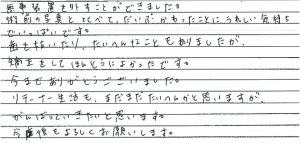 装置を外すことができました。
術前の写真と比べて、だいぶかわったことにうれしい気持ち
でいっぱいです。
歯を抜いたり、たいへんなこともありましたが、
矯正をしてほんとうによかったです。
今までありがとうございました。
リテーナー生活も、まだまだたいへんかと思いますが、
がんばっていきたいと思います。
今後もよろしくお願いします。